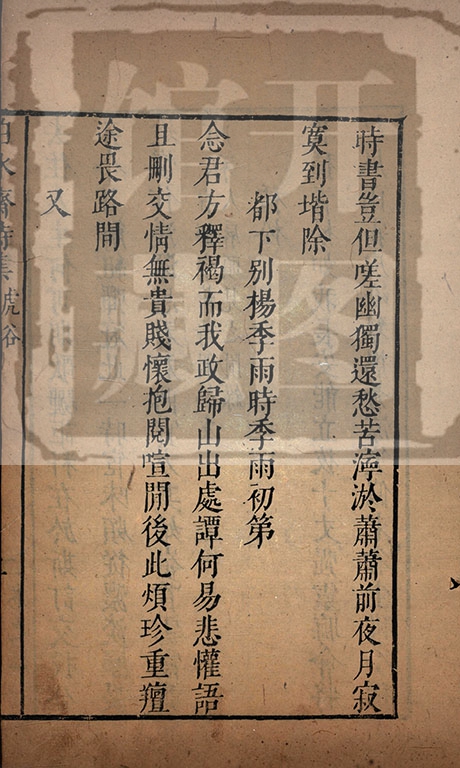 時書豈但嗟幽獨還愁苦濘淤蕭蕭前夜月寂
寞到堦除
都下別楊季雨時季雨初第
念君方釋褐而我政歸山出處譚何易悲懽語
且刪交情無貴賤懷抱閱喧閒後此煩珍重羶
途畏路間
又
白水齋詩集